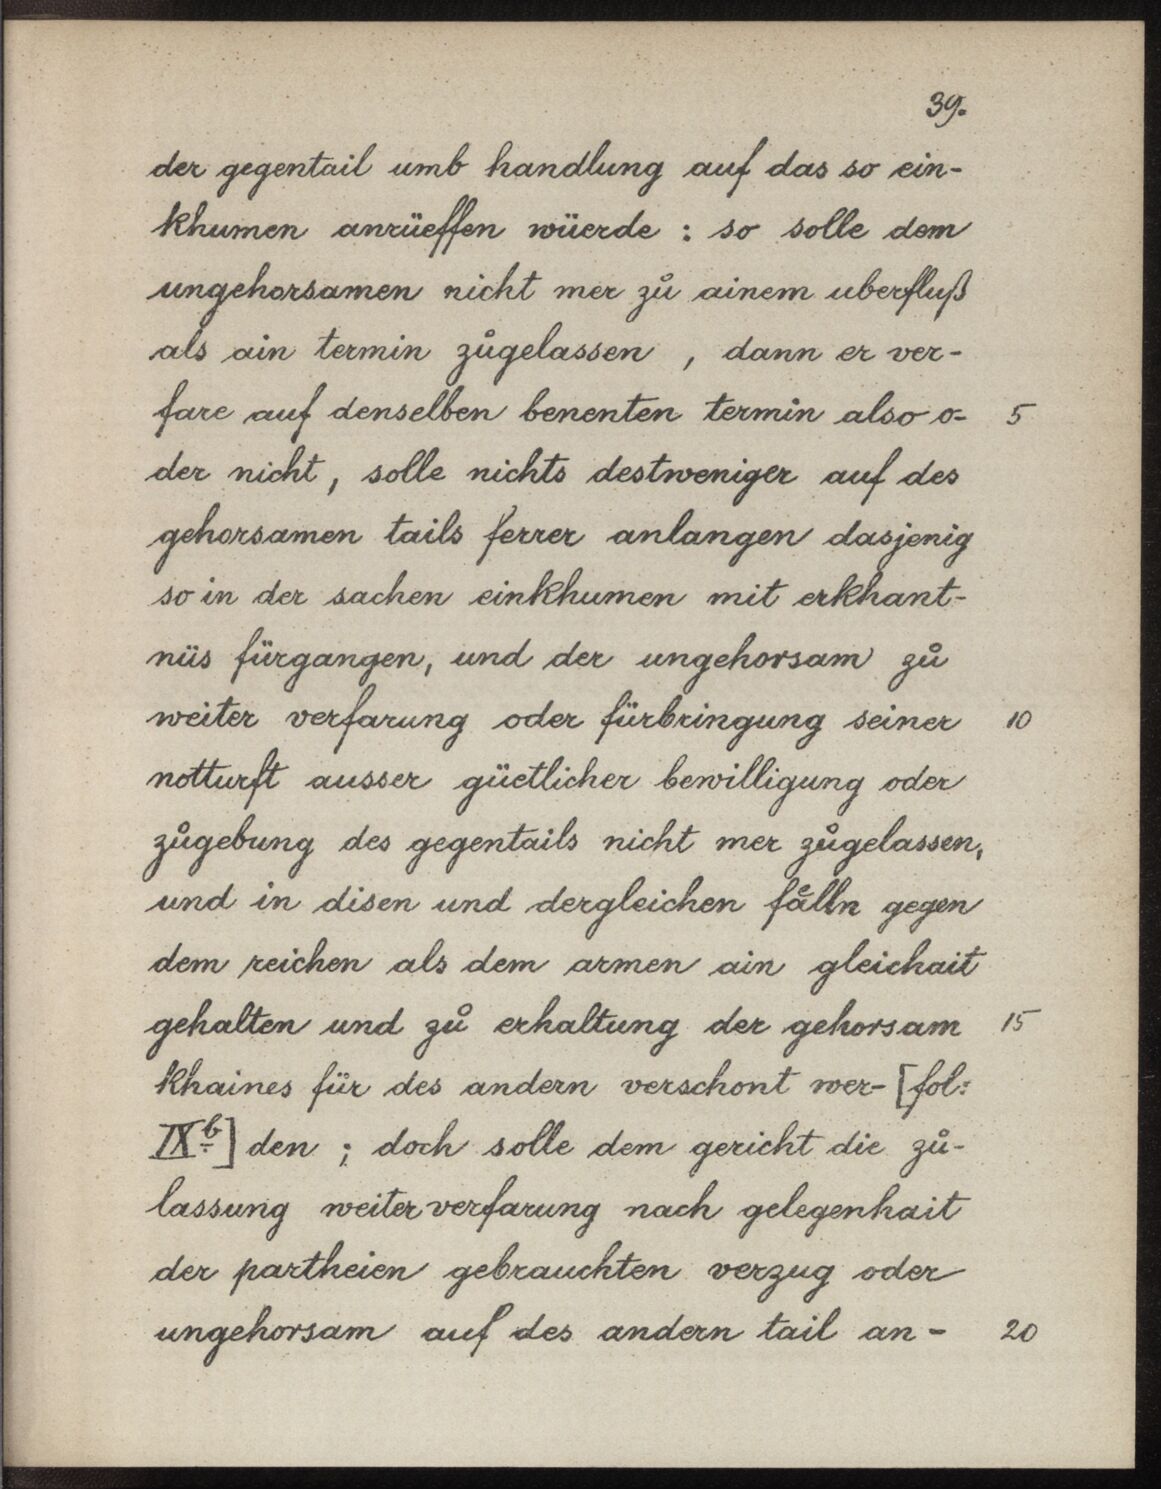 39.
der gegentail umb handlung auf das so ein-
khumen anrüeffen wüerde : so solle dem
ungehorsamen nicht mer zů ainem uberfluß
als ain termin zůgelassen , dann er ver-
fare auf denselben benenten termin also o- 5
der nicht, solle nichts destweniger auf des
gehorsamen tails ferrer anlangen dasjenig
so in der sachen einkhumen mit erkhant-
nüs fürgangen, und der ungehorsam zů
weiter verfarung oder fürbringung seiner 10
notturft ausser güetlicher bewilligung oder
zůgebung des gegentails nicht mer zůgelassen,
und in disen und dergleichen fålln gegen
dem reichen als dem armen ain gleichait
gehalten und zů erhaltung der gehorsam 15
khaines für des andern verschont wer- [fol:
IXᵇ] den ; doch solle dem gericht die zů-
lassung weiter verfarung nach gelegenhait
der partheien gebrauchten verzug oder
ungehorsam auf des andern tail an- 20